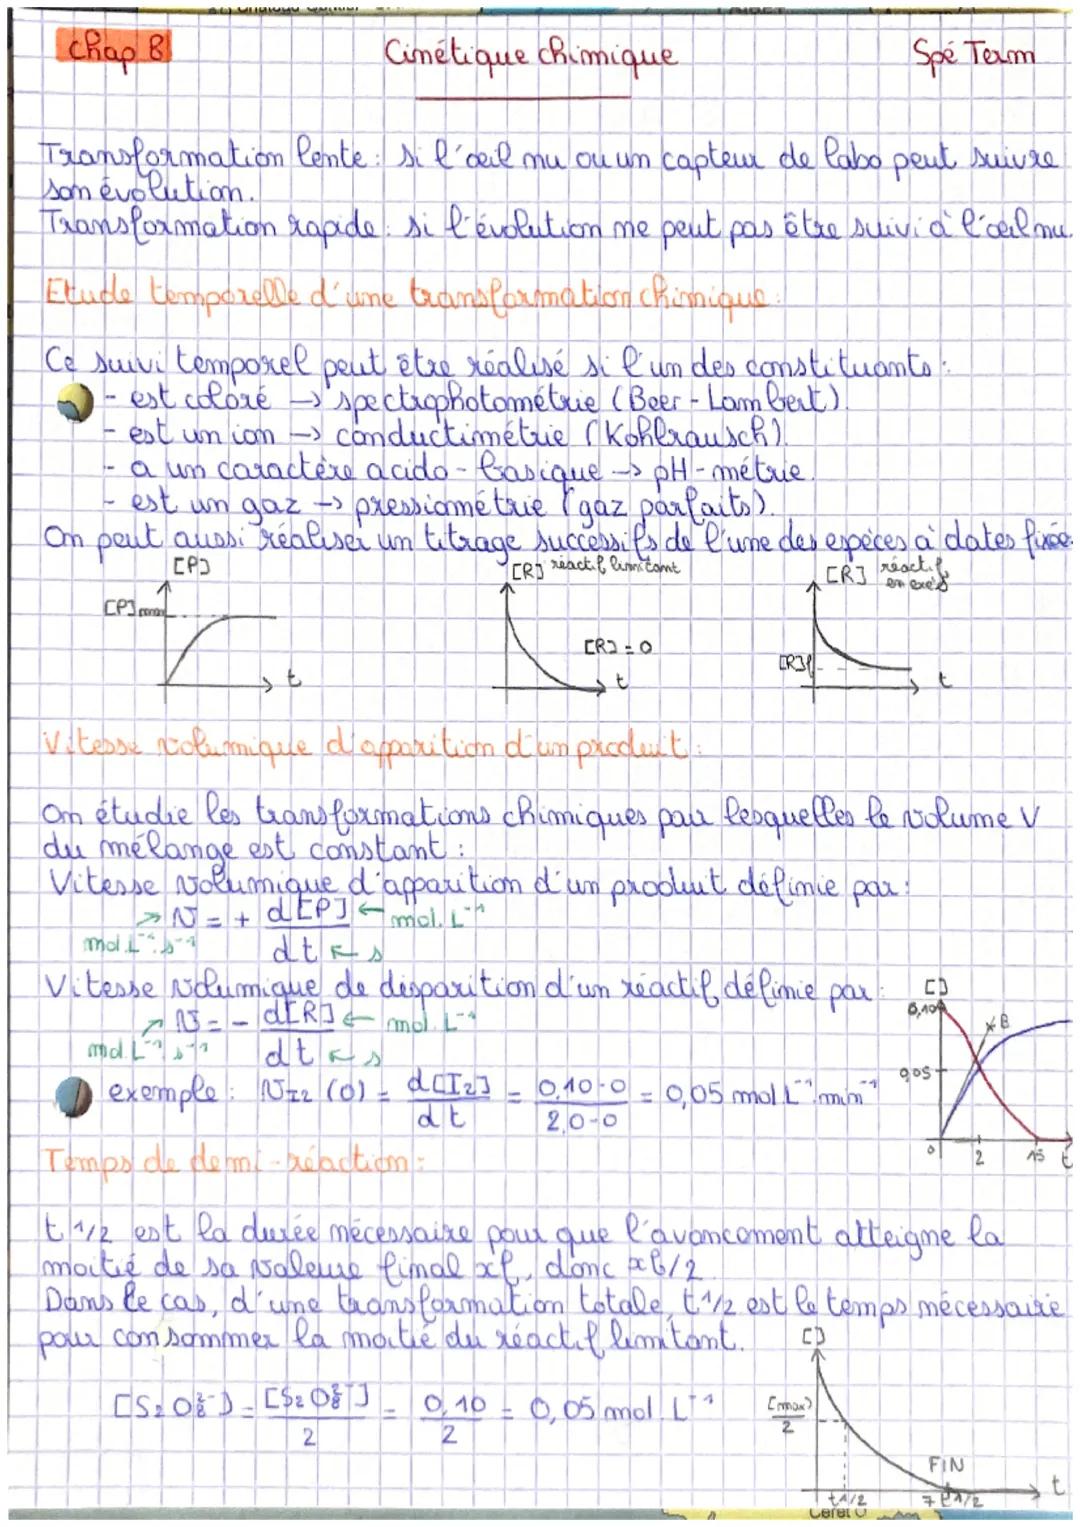 Chap 8 Cinétique chimique Spé Term
Transformation lente : si l'œil nu ou un capteur de labo peut suivre
son évolution.
Transformation rapide : si l'évolution ne peut pas être suivi à l'œil nu.
Etude temporelle d'une transformation chimique :
Ce suivi temporel peut être réalisé si l'un des constituants :
- est coloré → spectrophotométrie (Beer - Lambert).
- est un ion → conductimétrie (Kohlrausch).
- a un caractère acido - basique → pH - métrie.
- est un gaz → pressiométrie (gaz parfaits).
On peut aussi réaliser un titrage successifs de l'une des espèces à dates fixée.
[P] [R] réactif limitant [R] réactif
en excès
[P]max
[R] = 0
[R]f
t t t
Vitesse volumique d'apparition d'un produit :
On étudie les transformations chimiques par lesquelles le volume V
du mélange est constant :
Vitesse volumique d'apparition d'un produit définie par :
→ v = + d[P] ← mol. L⁻¹
mol.L⁻¹.s⁻¹ dt ← s
Vitesse volumique de disparition d'un réactif définie par :
→ v = - d[R] ← mol. L⁻¹
mol.L⁻¹.s⁻¹ dt ← s
[]
0,10
B
0,05
0 2 15 t
exemple : v I₂ (0) = d[I₂] = 0,10-0 = 0,05 mol.L⁻¹.min⁻¹
dt 2,0-0
Temps de demi-réaction :
t 1/2 est la durée nécessaire pour que l'avancement atteigne la
moitié de sa valeur final xf, donc xf/2.
Dans le cas, d'une transformation totale, t1/2 est le temps nécessaire
pour consommer la moitié du réactif limitant.
[S₂O₈²⁻] = [S₂O₈²⁻] = 0,10 = 0,05 mol. L⁻¹
2 2
[]
[max]
2
FIN
t1/2 7 t1/2 t